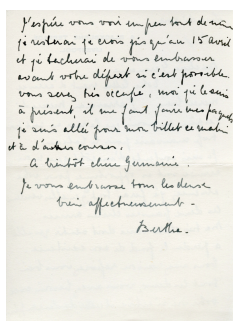 J'espère vous voir un peu tout de même
je resterai je crois jusqu'au 15 avril
et je tacherai de vous embrasser
avant votre départ si c'est possible.
vous serez très occupé, moi je le suis
à présent, il me faut faire mes paquets
je suis allé pour mon billet ce matin
et 2 d'autres courses.
A bientôt chère Germaine.
Je vous embrasse tous les deux
bien affectueusement -
Berthe.